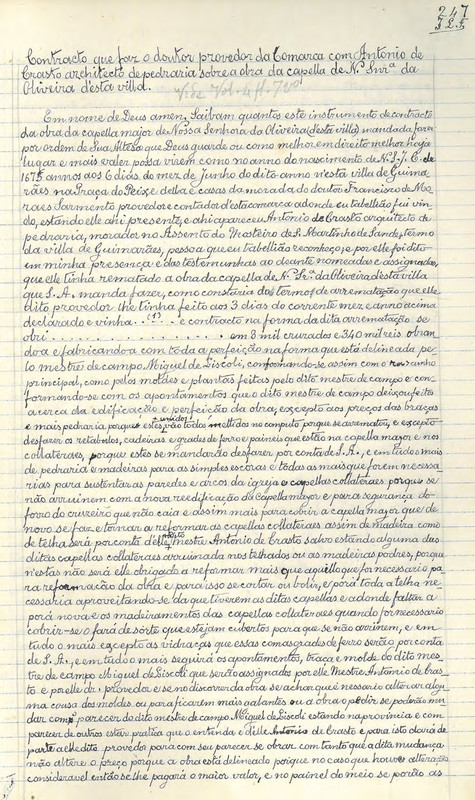 247
325
Contracto que faz o doutor provedor da Comarca com Antonio de
Crasto architecto de pedraria sobre a obra da capella de N.ª Snr.ª da
Oliveira d'esta villa.
Vide Vol. 4 fl.
Em nome de Deus amen. Saibam quantos este instrumento de contracto
da obra da capella maior de Nossa Senhora da Oliveira (desta villa) mandada fazer
por ordem de Sua Alteza que Deus guarde ou como melhor em direito melhor haja
lugar e mais valer possa virem como no anno do nascimento de N. S. J. C. de
1675 annos aos 6 dias do mez de junho do dito anno n'esta villa de Guima-
rães na Praça do Peixe della e casas da morada do doutor Francisco de Mo-
raes Sarmento provedor e contador d'esta comarca adonde eu tabellião fui vin-
do, estando elle ahi presente, e ahi appareceu Antonio de Crasto arquitecto de
pedraria, morador no Assento do Mosteiro de S. Martinho de Sande, termo
da villa de Guimarães, pessoa que eu tabellião reconheço, e por elle foi dito
em minha presença e das testemunhas ao deante nomeadas e assignadas,
que elle tinha rematado a obra da capella de N.ª Sr.ª da Oliveira d'esta villa
que S. A. manda fazer, como constaria dos termos de arrematação que elle
dito provedor lhe tinha feito aos 3 dias do corrente mez e anno acima
declarado e vinha . . (1) . . e contracto na forma da dita arrematação se
obri . . . . . . . . . . . . . . . . em 8 mil cruzados e 340 mil reis obran
do-a e fabricando-a com toda a perfeição na forma que está delineada pe-
lo mestre de campo Miguel de Liscoli, conformando-se assim com o rascunho
principal, como pelos moldes e plantas feitas pelo dito mestre de campo e con-
formando-se com os apontamentos que o dito mestre de campo deixou feitos
acerca da edificação e perfeição da obra, excepto aos preços das braças
e mais pedraria porque estes vão todos mettidos no computo porque se arrematou, e excepto
desfazer os retabolos, cadeiras e grades de ferro e paineis que estão na capella maior e nos
collateraes, porque estes se mandarão desfazer por conta de S. A., e em tudo o mais
de pedraria e madeiras para as simples escoras e todas as mais que forem necessa-
rias para sustentar as paredes e arcos da igreja e capellas collateraes porque se
não arruinem com a nova reedificação da capella mayor e para segurança do
forro do cruzeiro que não caia e assim mais para cobrir a capella mayor que de
novo se faz e tornar a reformar as capellas collateraes assim de madeira como
de telha será por conta d'elle mestre Antonio de Crasto salvo estando alguma das
ditas capellas collateraes arruinada nos telhados ou as madeiras podres, porque
n'estas não será elle obrigado a reformar mais que aquillo que for necessario pa-
ra reformação da obra e para isso se cortar ou bolir, e porá toda a telha ne-
cessaria aproveitando-se da que tiverem as ditas capellas e adonde faltar a
porá nova e os madeiramentos das capellas collateraes quando for necessario
cobrir-se o fará de sorte que estejam cubertos para que se não arruinem, e em
tudo o mais excepto as vidraças que essas com as grades de ferro serão por conta
de S. A., e em tudo o mais seguirá os apontamentos, traça e molde do dito mes-
tre de campo Miguel de Liscoli que serão assignados por elle Mestre Antonio de Cras-
to e por elle dr. provedor e se no discorrer da obra se achar que é necessario alterar algu-
ma cousa dos moldes ou para ficarem mais galantes ou a obra o pedir se poderão mu-
dar com parecer do dito mestre de campo Miguel de Liscoli estando na provincia e com
parecer de outros estar pratica que o entenda e d'elle Antonio de Crasto e para isto dará de
parte a elle dito provedor para com seu parecer se obrar com tanto que a dita mudança
não altere o preço porque a obra está delineada porque no caso que houver alteração
consideravel então se lhe pagará o maior valor, e no painel do meio se porão as